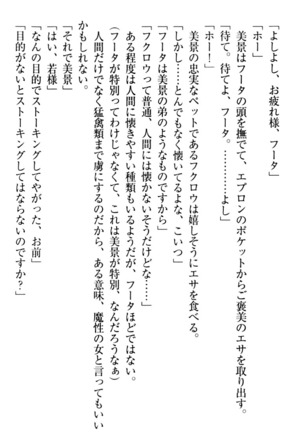 「よしよし、お疲れ様、フータ」
「ホー」
美景はフータの頭を撫でて、エプロンのポケットからご褒美のエサを取り出す。
「待て。待てよ、フータ。…………よし」
「ホー！」
美景の忠実なペットであるフクロウは嬉しそうにエサを食べる。
「しかし……とんでもなく懐いてるよな、こいつ」
「フータは美景の弟のようなものですから」
「フクロウって普通、人間には懐かないそうだけどな……」
ある程度は人間に懐きやすい種類もいるようだが、フータほどではない。
（フータが特別ってわけじゃなくて、これは美景が特別、なんだろうなぁ）
人間だけでなく猛禽類まで虜にするのだから、ある意味、魔性の女と言ってもいい
かもしれない。
「それで美景」
「はい、若様」
「なんの目的でストーキングしてやがった、お前」
「目的がないとストーキングしてはならないのですか？」